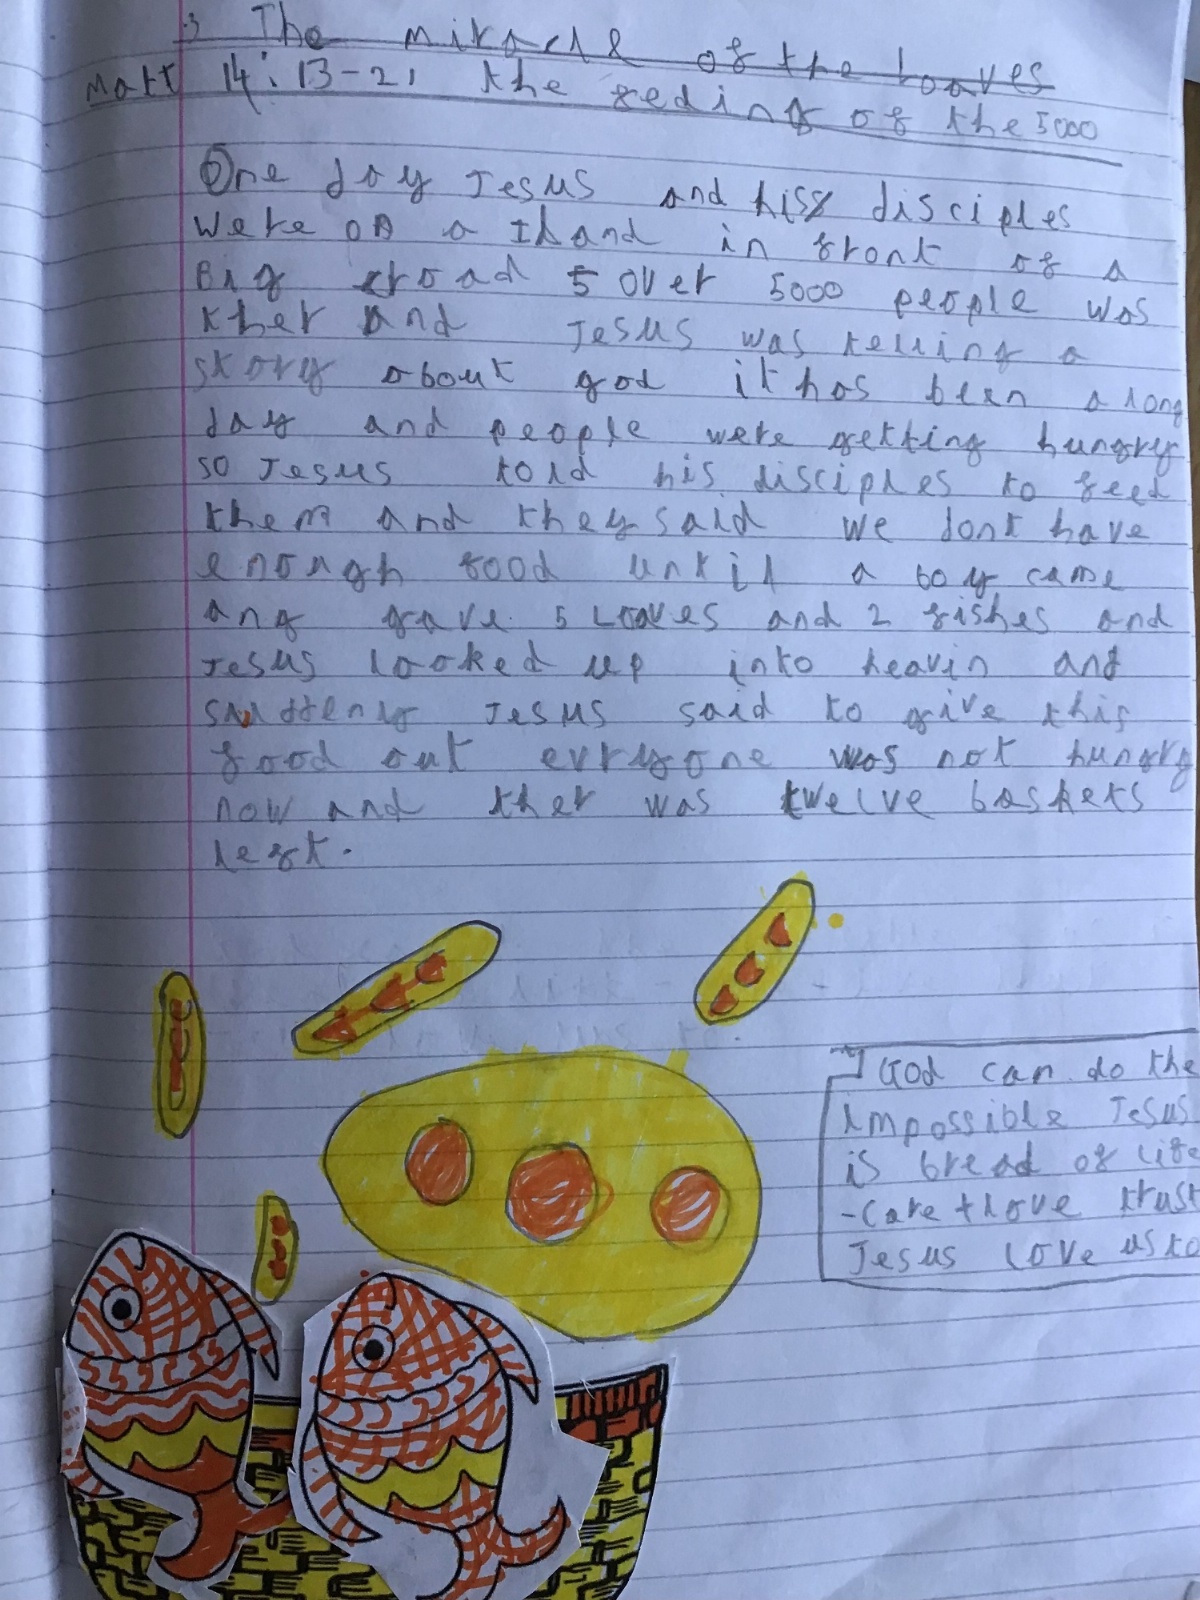 The miracle of the Loaves
Matt 14:13-21 the feding of the 5000
One day Jesus and hiss disciples
were on a Iland in front of a
Big croad 5 over 5000 people was
ther and Jesus was telling a
story about god it has been a long
day and people were getting hungry
so Jesus told his disciples to feed
them and they said we dont have
enough food until a boy came
ang gave 5 Loaves and 2 fishes and
Jesus looked up into heavin and
suddenly Jesus said to give this
food out evryone was not hungry
now and ther was twelve baskets
left.
God can do the
impossible Jesus
is bread of life
-care + love trust
Jesus love us to